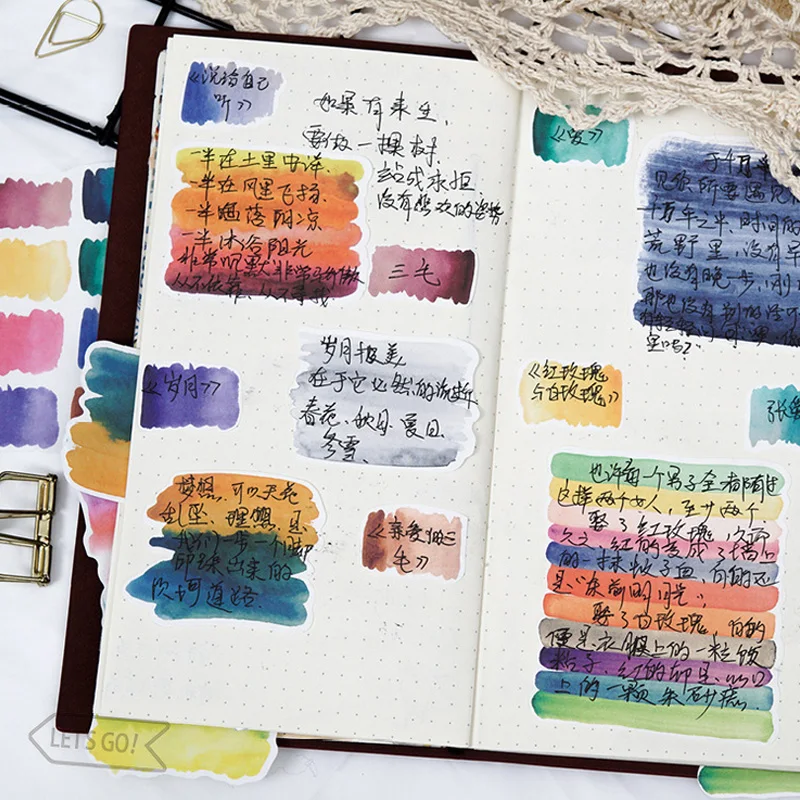 《说给自己
听》
如果有来生,
要做一棵树
站成永恒
没有悲欢的姿势
一半在土里安详.
一半在风里飞扬.
一半洒落阴凉
一半沐浴阳光
非常沉默非常骄傲
从不依靠、从不寻找
三毛
《岁月》
岁月极美
在于它必然的流逝
春花、秋月、夏日、
冬雪.
梦想.可以天花
乱坠、理想、是
我们一步一个脚
印踩出来的
坎坷道路.
《亲爱的三
毛》
《爱》
于千万年
见你所要遇见
千万年之中,时间的
荒野里,没有早
也没有晚一步,刚
那也没有别的话可
里吗?”
《红玫瑰
与白玫瑰》
张爱
也许每一个男子全都有过
这样两个女人,至少两个
娶了红玫瑰,久而
久之,红的变成了墙上
的一抹蚊子血,白的还
是“床前明月光”;
娶了白玫瑰,白的
便是衣服上的一粒饭
粘子、红的却是心口
上的一颗朱砂痣.
LET'S GO!